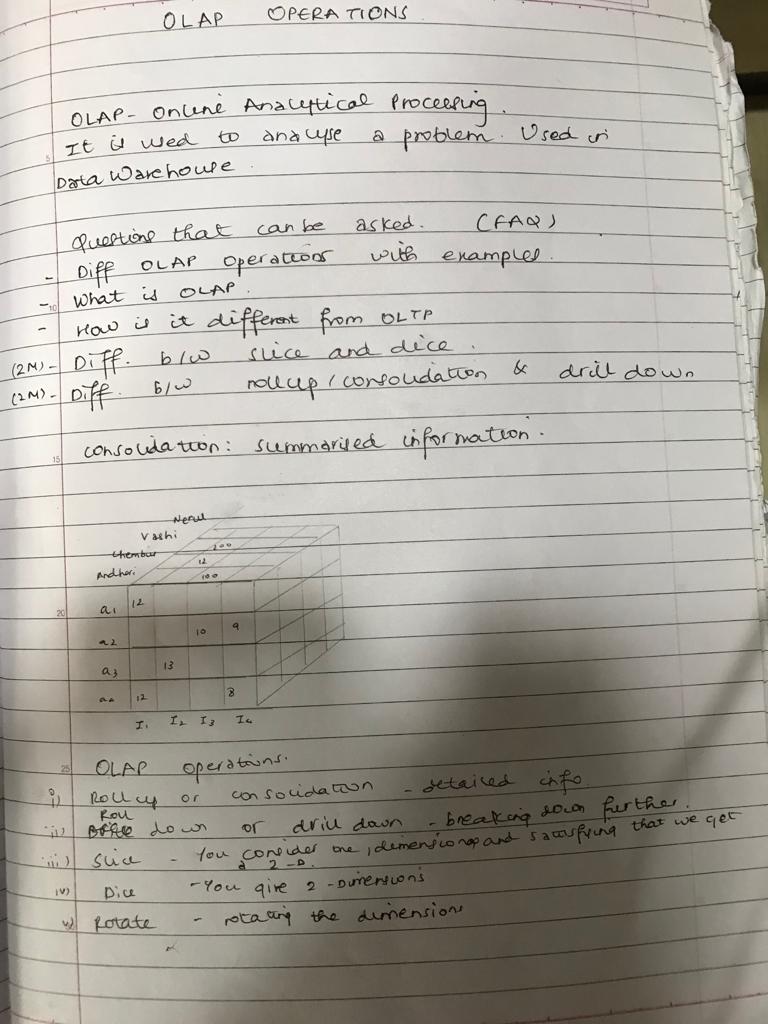 OLAP OPERATIONS
OLAP - Online Analytical Processing.
It is used to analyse a problem. Used in
Data Warehouse.
Questions that can be asked. (FAQ)
- Diff OLAP operations with examples.
- What is OLAP.
- How is it different from OLTP
(2M) - Diff. b/w slice and dice.
(2M) - Diff. b/w rollup / consolidation & drill down
consolidation: summarised information.
Nerul
Vashi
Chembur 200
12
Andheri 100
a1 12
a2 10 9
a3 13
12 8
I1 I2 I3 I4
OLAP operations.
i) Roll up or consolidation - detailed info.
Roll
ii) down or drill down - breaking down further.
iii) Slice - You consider one, dimension and satisfying that we get
a 2-D.
iv) Dice - You give 2-Dimensions
v) Rotate - rotating the dimensions